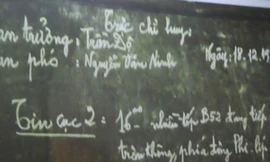 Trực chỉ huy:
an trưởng: Trần Độ
an phó: Nguyễn Văn Ninh Ngày: 18.12.19
Tin cục 2: 16ʰ⁰⁰ nhiều tốp B52 đang tiếp
trên không, phía đông Phi-líp